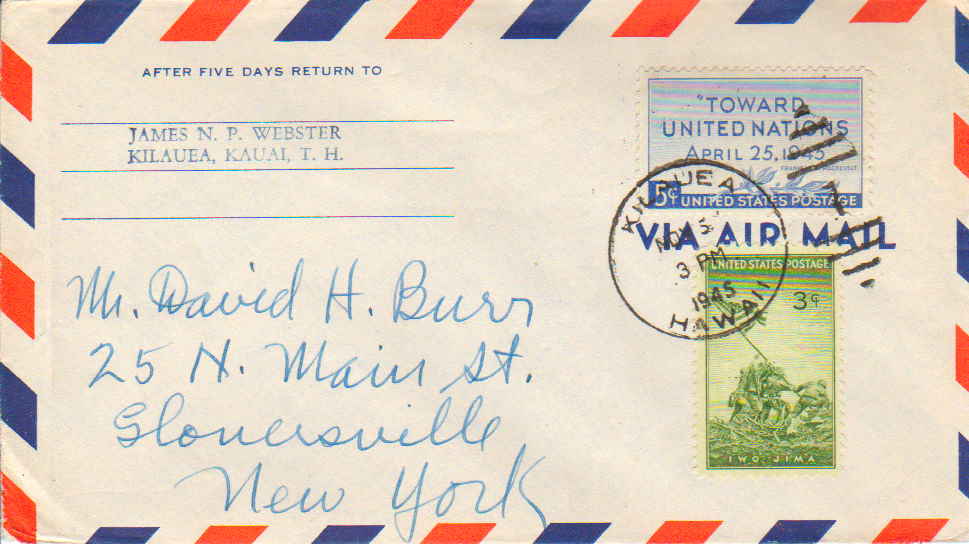 AFTER FIVE DAYS RETURN TO
JAMES N. P. WEBSTER
KILAUEA, KAUAI, T. H.
"TOWARD
UNITED NATIONS
APRIL 25, 1945"
FRANKLIN D. ROOSEVELT
5¢ UNITED STATES POSTAGE
VIA AIR MAIL
KILAUEA
NOV 5
3 PM
1945
HAWAII
UNITED STATES POSTAGE
3¢
IWO JIMA
Mr. David H. Burr
25 N. Main St.
Gloversville
New York